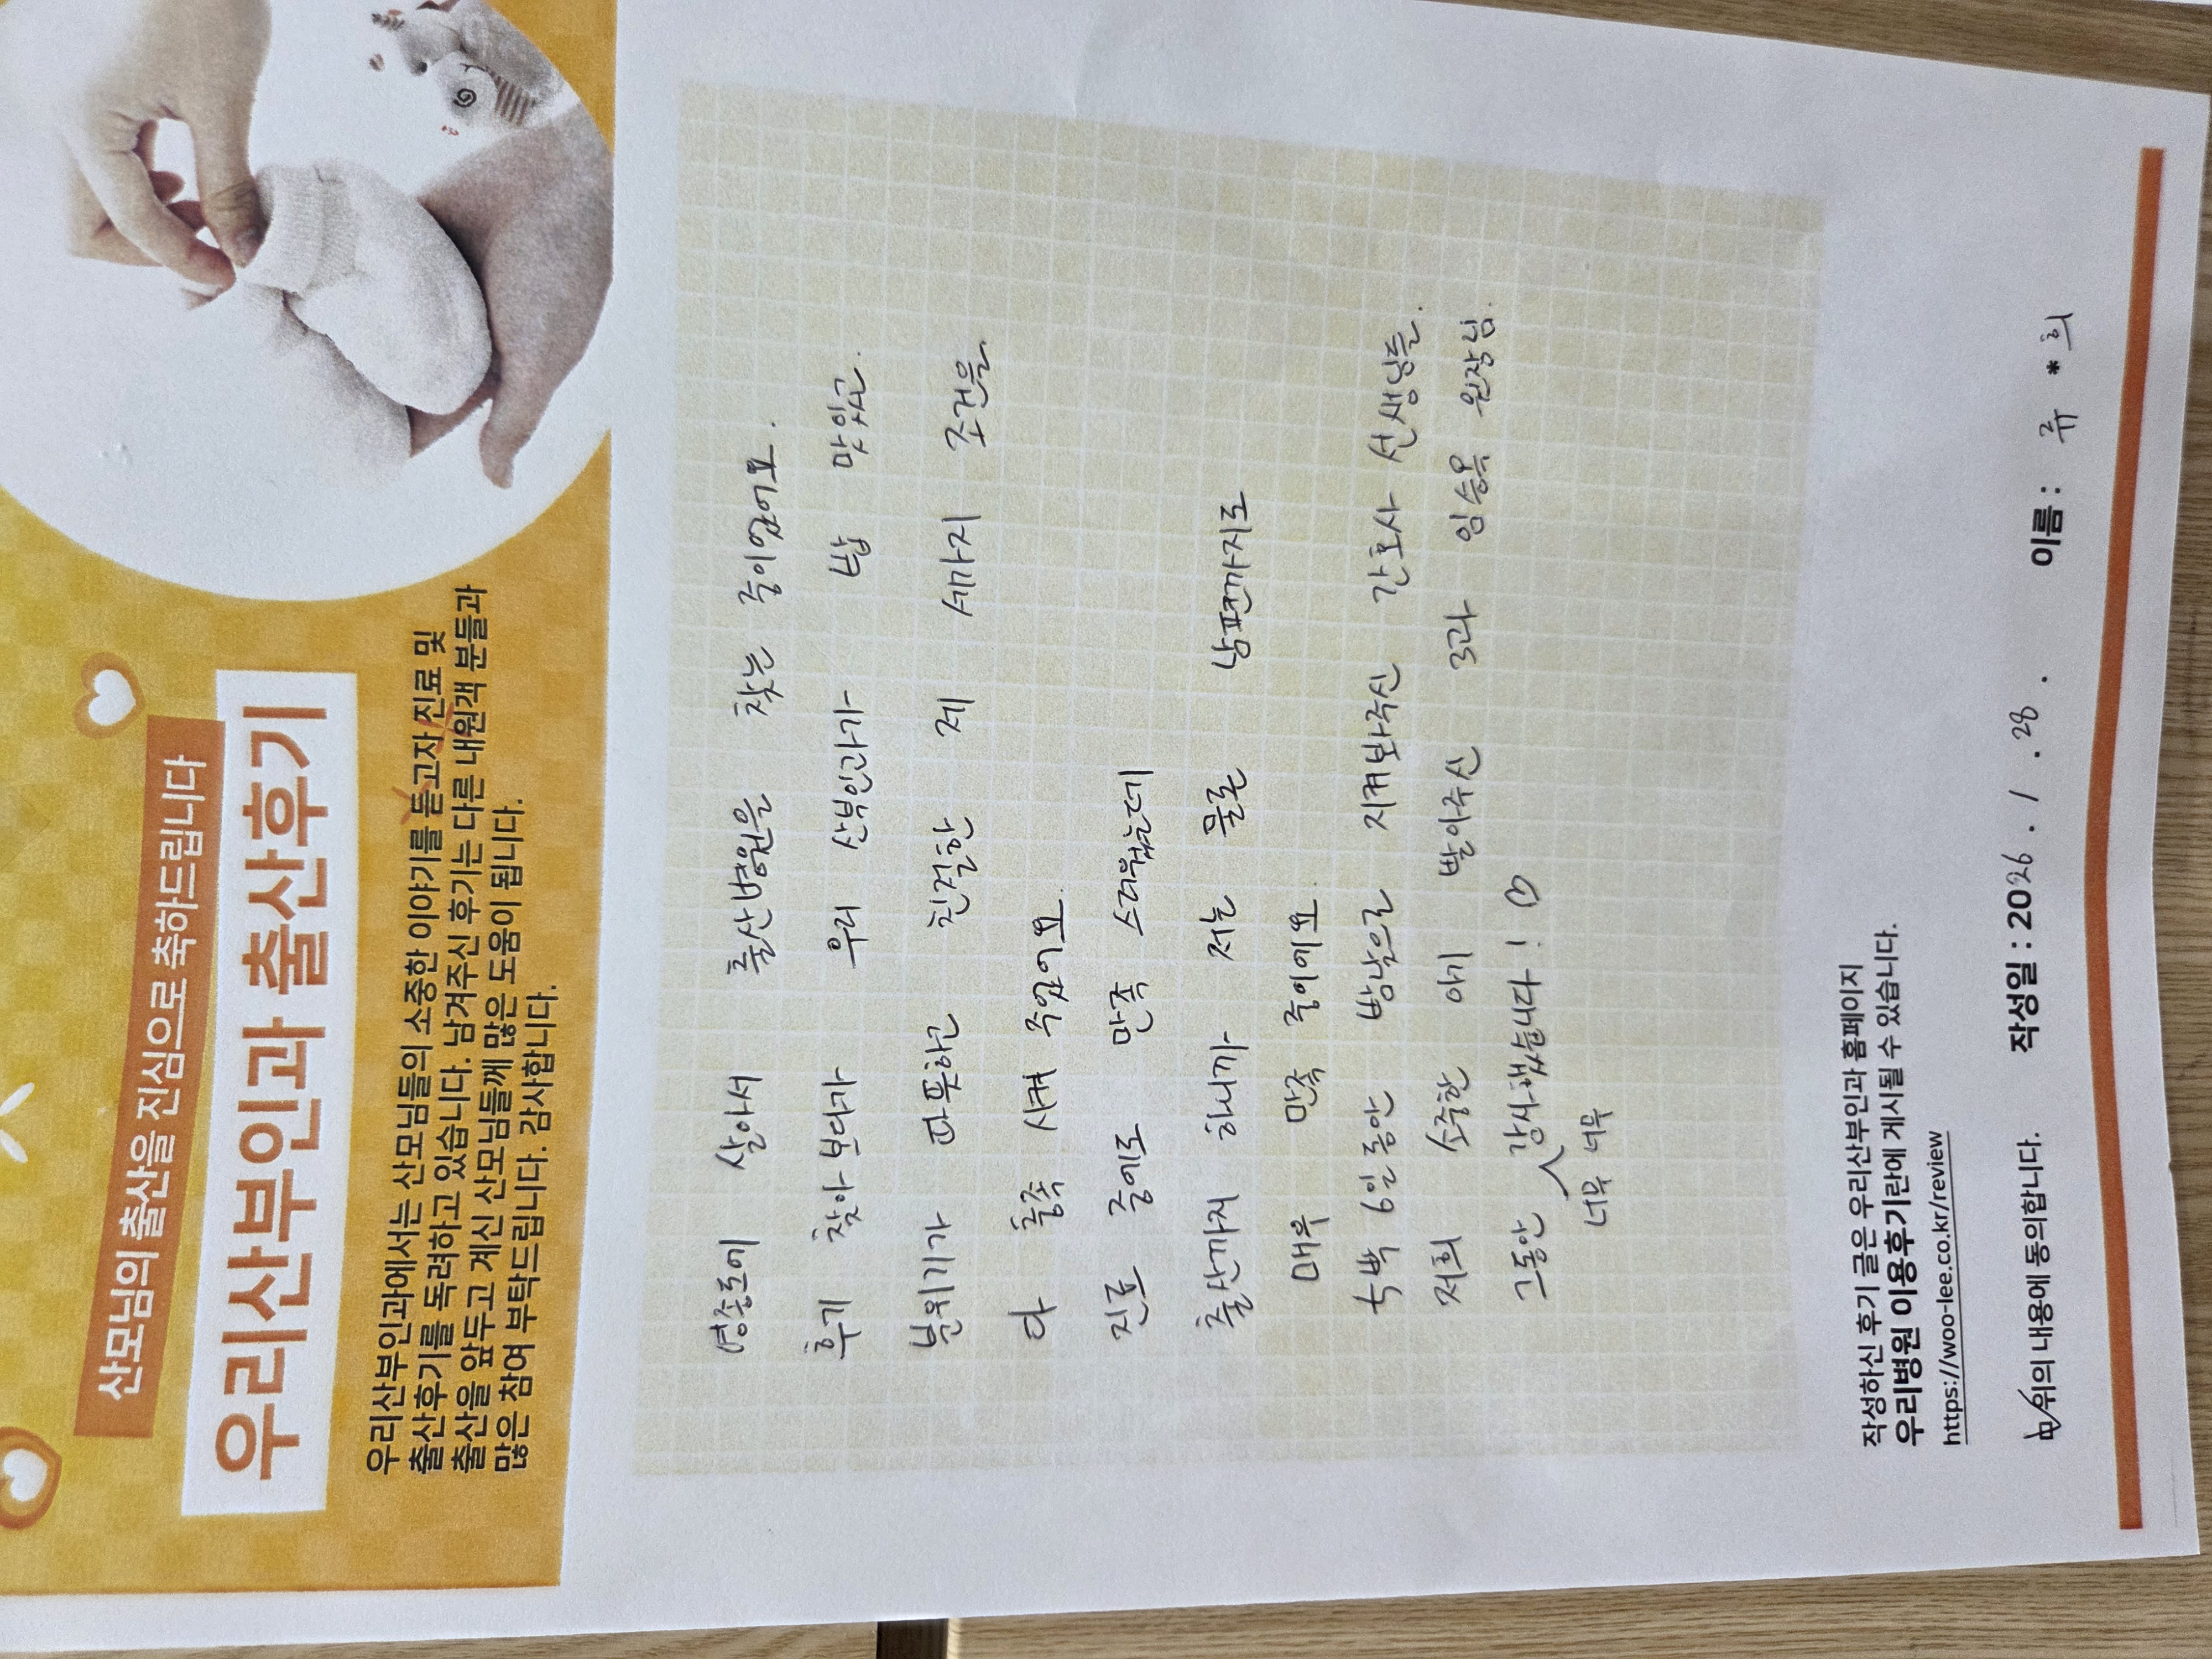 산모님의 출산을 진심으로 축하드립니다
우리산부인과 출산후기
우리산부인과에서는 산모님들의 소중한 이야기를 듣고자 진료 및
출산후기를 독려하고 있습니다. 남겨주신 후기는 다른 내원객 분들과
출산을 앞두고 계신 산모님들께 많은 도움이 됩니다.
많은 참여 부탁드립니다. 감사합니다.
영종도에 살아서 출산병원을 찾는 중이었어요.
후기 찾아보다가 우리 산부인과가 밥 맛있고
분위기가 따뜻하고 친절한 제 세가지 조건을
다 충족 시켜 주었어요.
진료 중에도 만족 스러웠는데
출산까지 하니까 저는 물론 남편까지도
매우 만족 중이에요.
5박 6일동안 밤낮으로 지켜봐주신 간호사 선생님들.
저희 소중한 아기 받아주신 3과 임승옥 원장님.
그동안 감사했습니다! ♡
너무 너무
작성하신 후기 글은 우리산부인과 홈페이지
우리병원 이용후기란에 게시될 수 있습니다.
https://woo-lee.co.kr/review
위의 내용에 동의합니다. 작성일 : 2026. 1 . 28 . 이름 : 류 * 희